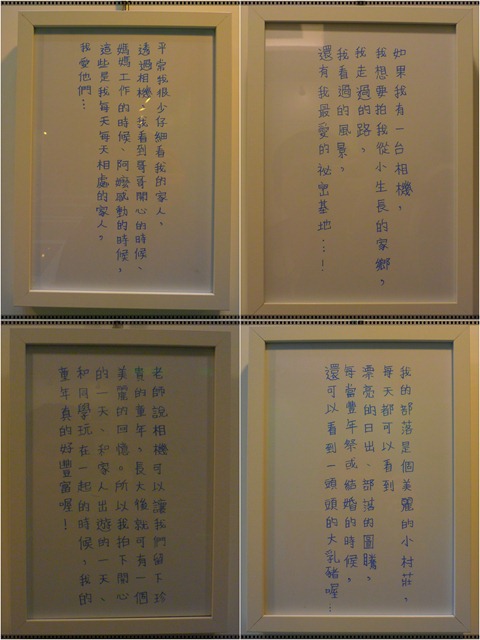 平常我很少仔細看我的家人、
透過相機，我看到哥哥開心的時候、
媽媽工作的時候、阿嬤感動的時候，
這些是我每天每天相處的家人，
我愛他們…
如果我有一台相機，
我想要拍我從小生長的家鄉，
我走過的路，
我看過的風景，
還有我最愛的祕密基地…！
老師說相機可以讓我們留下珍
貴的童年、長大後就可有一個
美麗的回憶。所以我拍下開心
的一天、和家人出遊的一天、
和同學玩在一起的時候，我的
童年真的好豐富喔！
我的部落是個美麗的小村莊，
每天都可以看到
漂亮的日出、部落的圖騰，
每當豐年祭或結婚的時候，
還可以看到一頭頭的大乳豬喔…